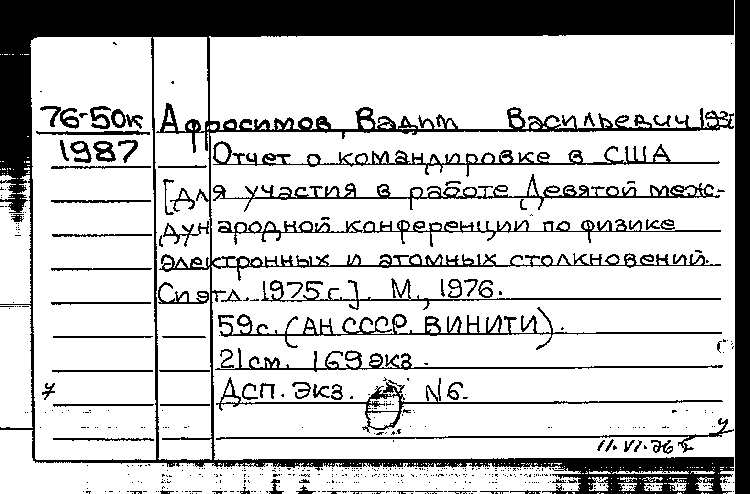 76-50к Афросимов, Вадим Васильевич
1987 Отчет о командировке в США
[Для участия в работе Девятой меж-
дународной конференции по физике
электронных и атомных столкновений.
Сиэтл. 1975 г.]. М., 1976.
59с. (АН СССР. ВИНИТИ).
21 см. 169 экз.
ДСП. Экз. N6.
11.VI.76